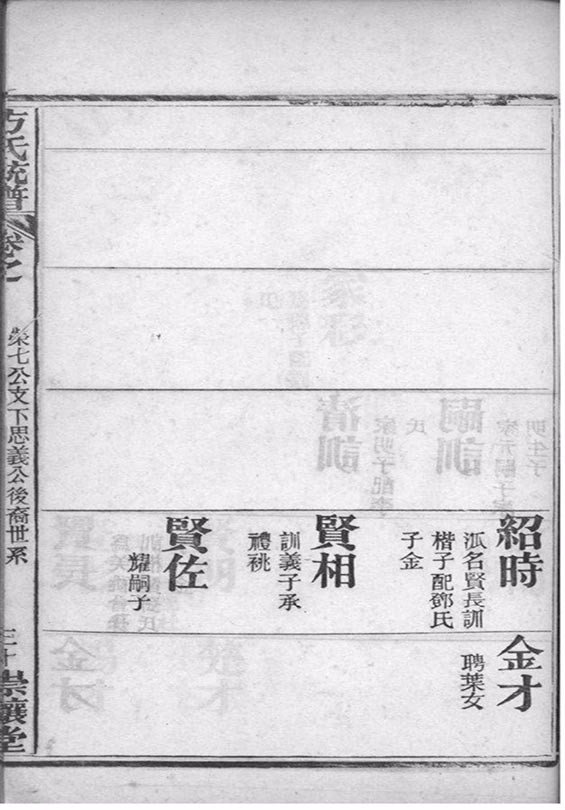 紹時
派名賢長訓
楷子配鄧氏
子金
賢相
訓義子承
禮祧
賢佐
耀嗣子
金才
聘葉女
方氏統譜
卷之
榮七公支下思義公後裔世系
三十
崇讓堂